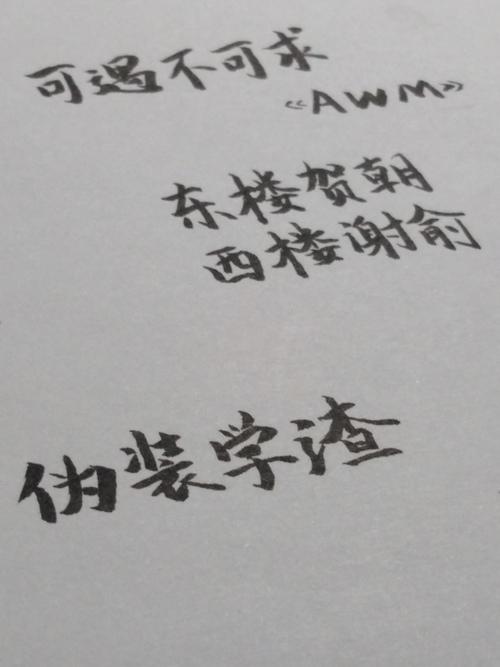 可遇不可求
《AWM》
东楼贺朝
西楼谢俞
伪装学渣